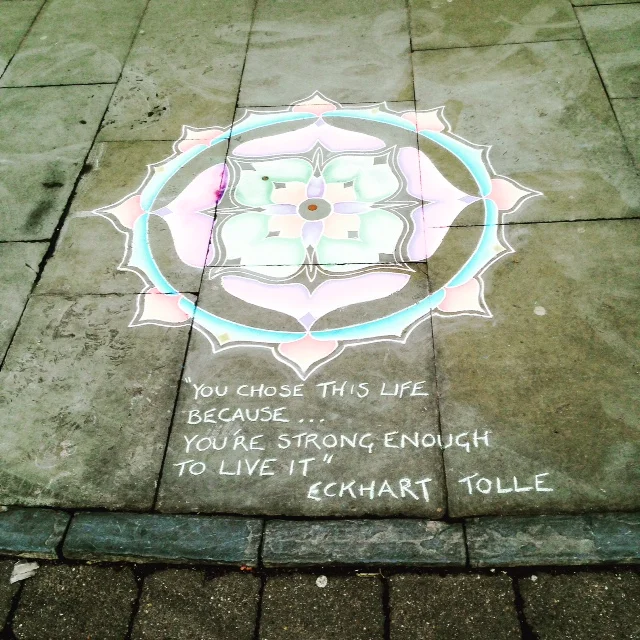 "YOU CHOSE THIS LIFE
BECAUSE...
YOU'RE STRONG ENOUGH
TO LIVE IT"
ECKHART TOLLE